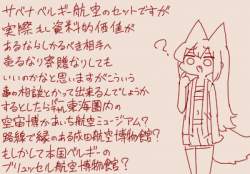 サベナベルギー航空のセットですが
実際もし資料的価値が
あるならしかるべき相手へ
売るなり寄贈なりしても
いいのかなと思いますがこういう
事の相談とかって出来るんでしょうか
するとしたら東海圏内の
空宙博かあいち航空ミュージアム?
路線で縁のある成田航空博物館?
もしかして本国ベルギーの
ブリュッセル航空博物館?
?